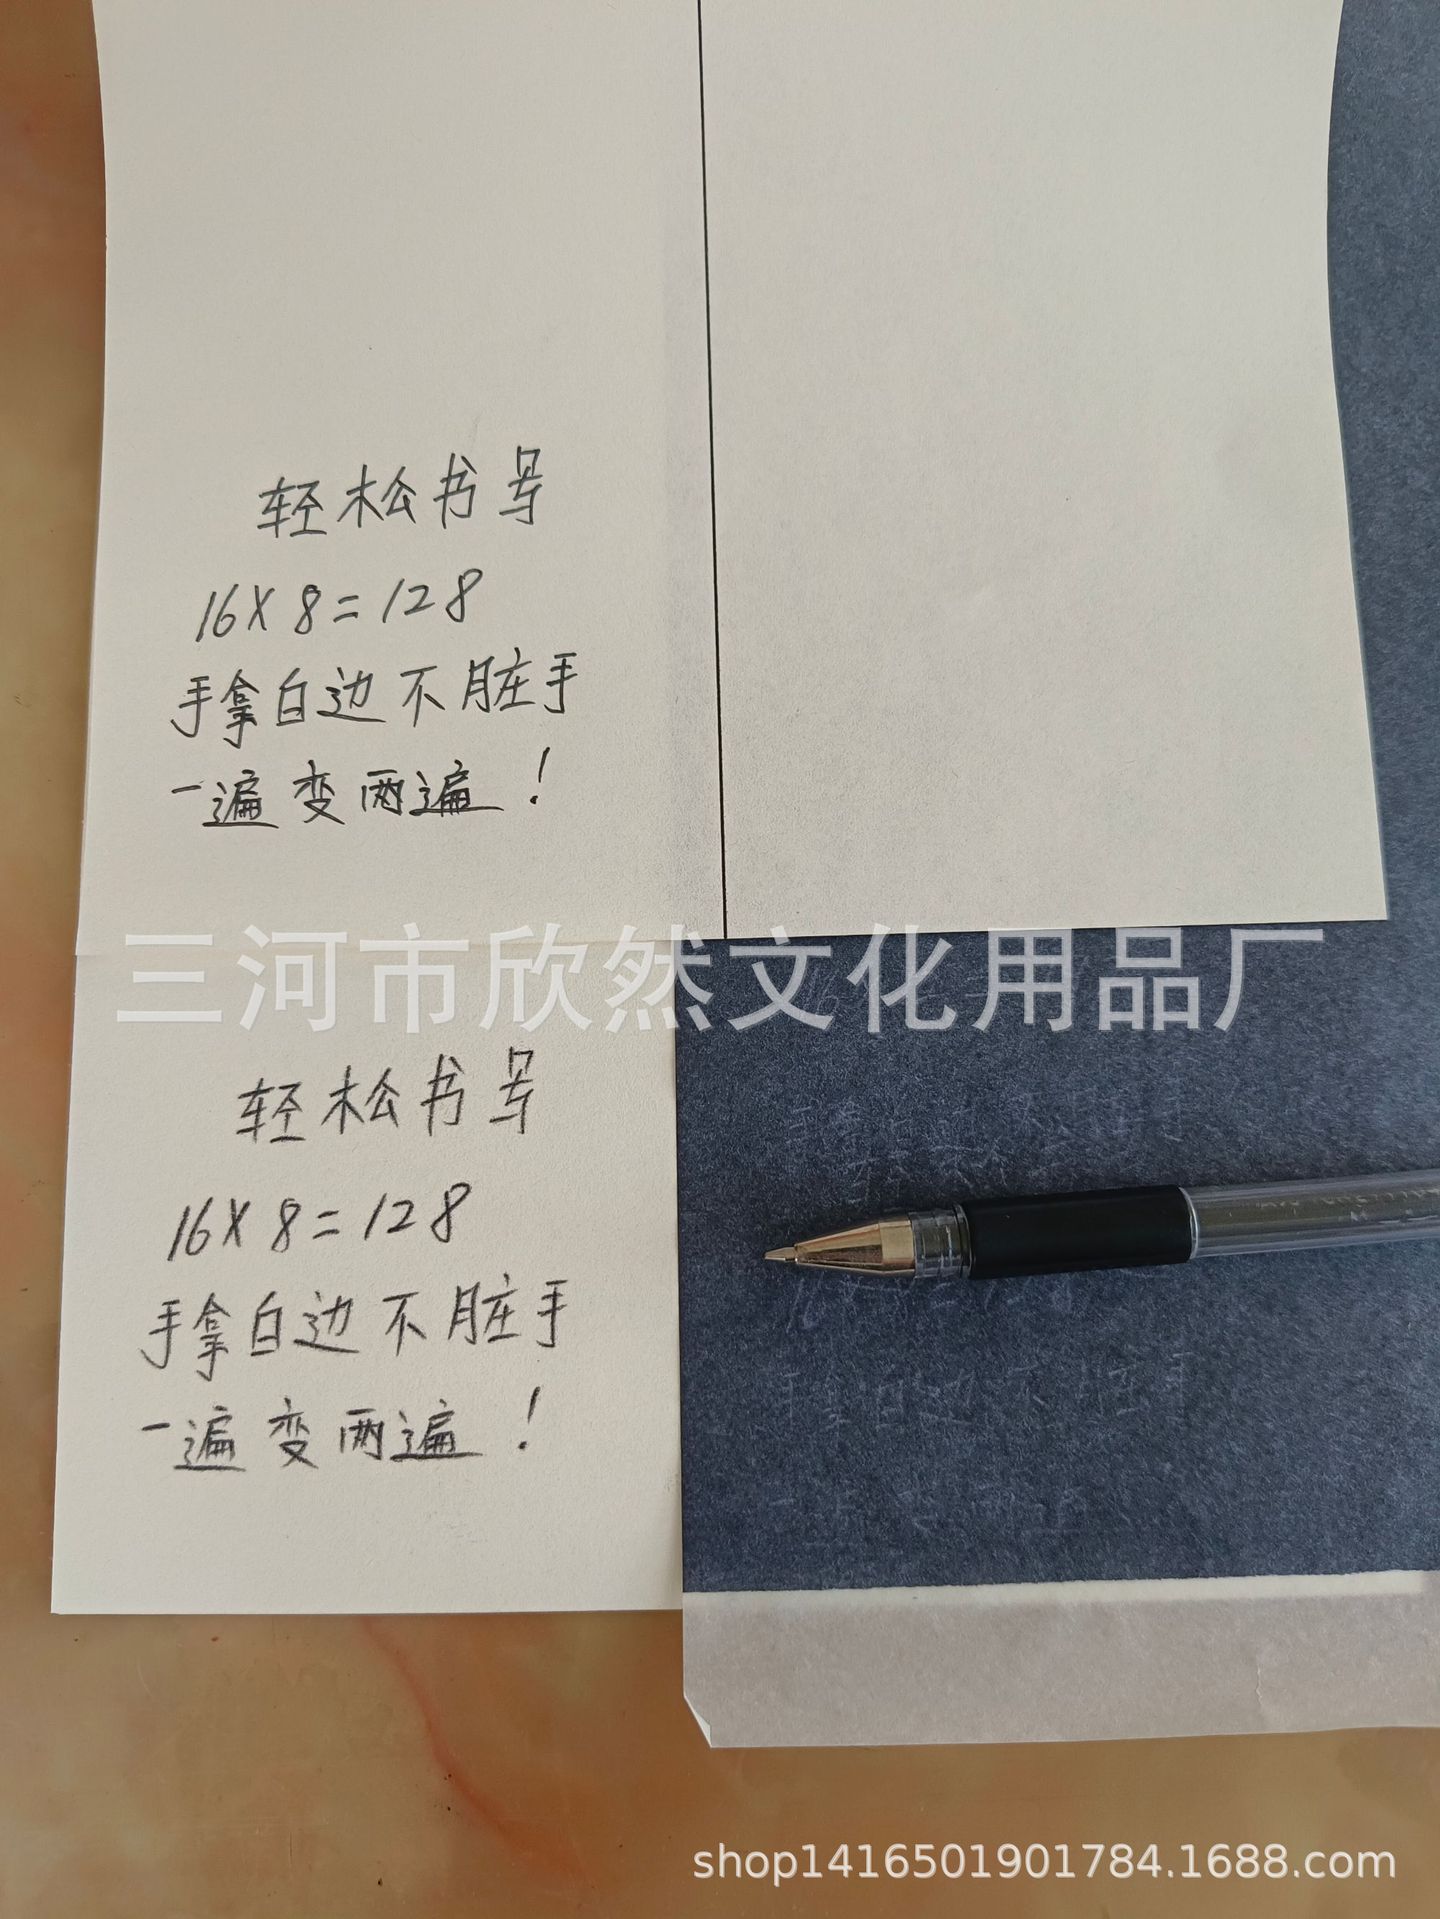 轻松书写
16×8=128
手拿白边不脏手
一遍变两遍！
三河市欣然文化用品厂
轻松书写
16×8=128
手拿白边不脏手
一遍变两遍！
shop1416501901784.1688.com